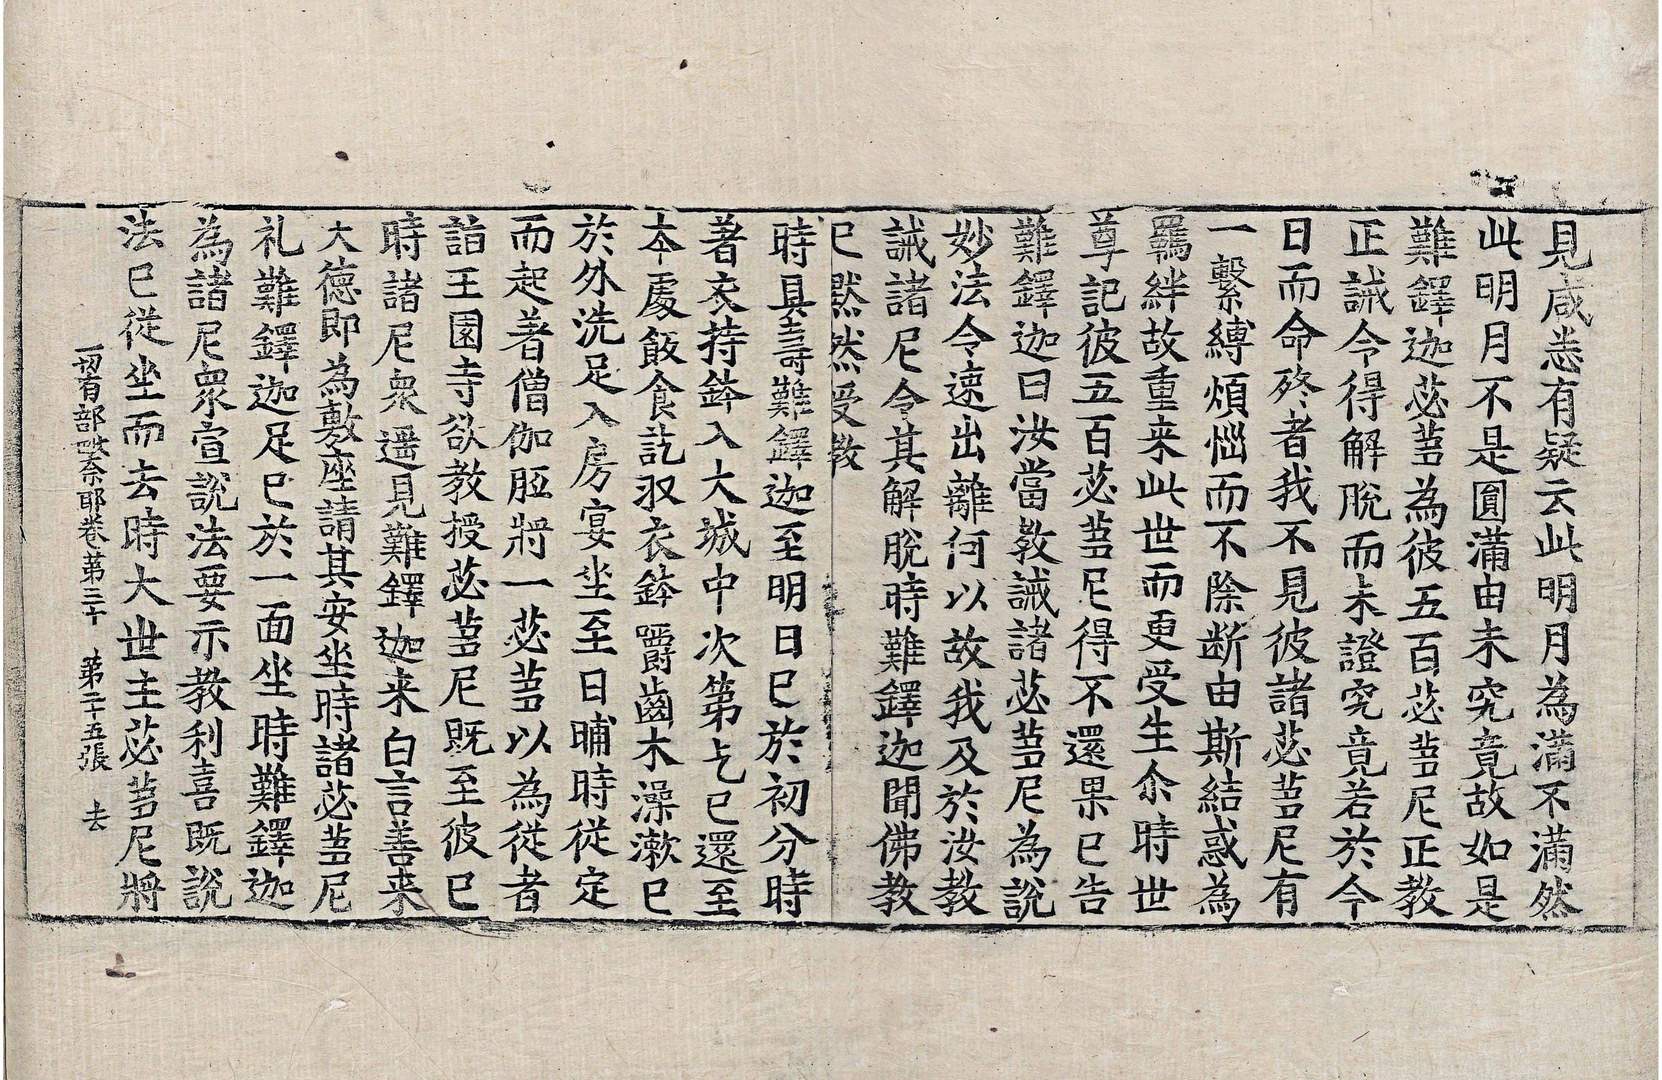 見咸悉有疑云此明月為滿不滿然
此明月不是圓滿由未究竟故如是
難鐸迦苾芻為彼五百苾芻尼正教
正誡令得解脫而未證究竟若於今
日而命終者我不見彼諸苾芻尼有
一繫縛煩惱而不除斷由斯結惑為
羈絆故重来此世而更受生尒時世
尊記彼五百苾芻尼得不還果已告
難鐸迦曰汝當教誡諸苾芻尼為說
妙法令速出離何以故我及於汝教
誡諸尼令其解脫時難鐸迦聞佛教
已黙然受教
時具壽難鐸迦至明日已於初分時
著衣持鉢入大城中次第乞已還至
本處飯食訖収衣鉢嚼齒木澡漱已
於外洗足入房宴坐至日晡時從定
而起著僧伽胝將一苾芻以為從者
詣王園寺欲教授苾芻尼既至彼已
時諸尼衆遥見難鐸迦来白言善来
大德即為敷座請其安坐時諸苾芻尼
礼難鐸迦足已於一面坐時難鐸迦
為諸尼衆宣說法要示教利喜既說
法已從坐而去時大世主苾芻尼將
一切有部毗柰耶卷第三十 第二十五張 去